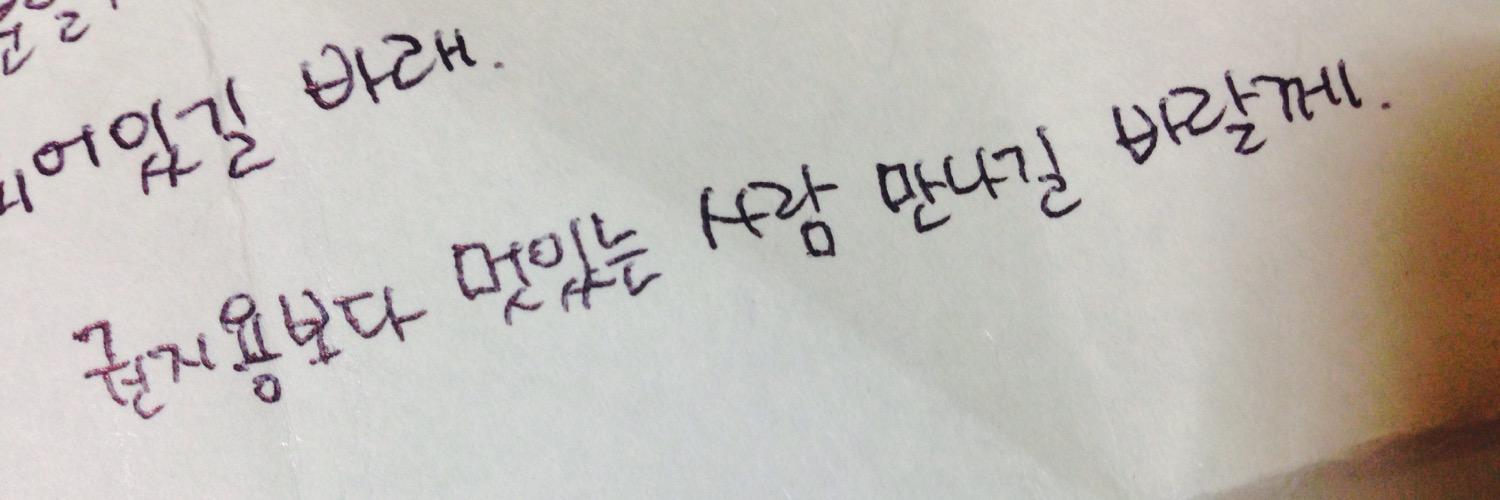 어있길 바래.
권지용보다 멋있는 사람 만나길 바랄께.